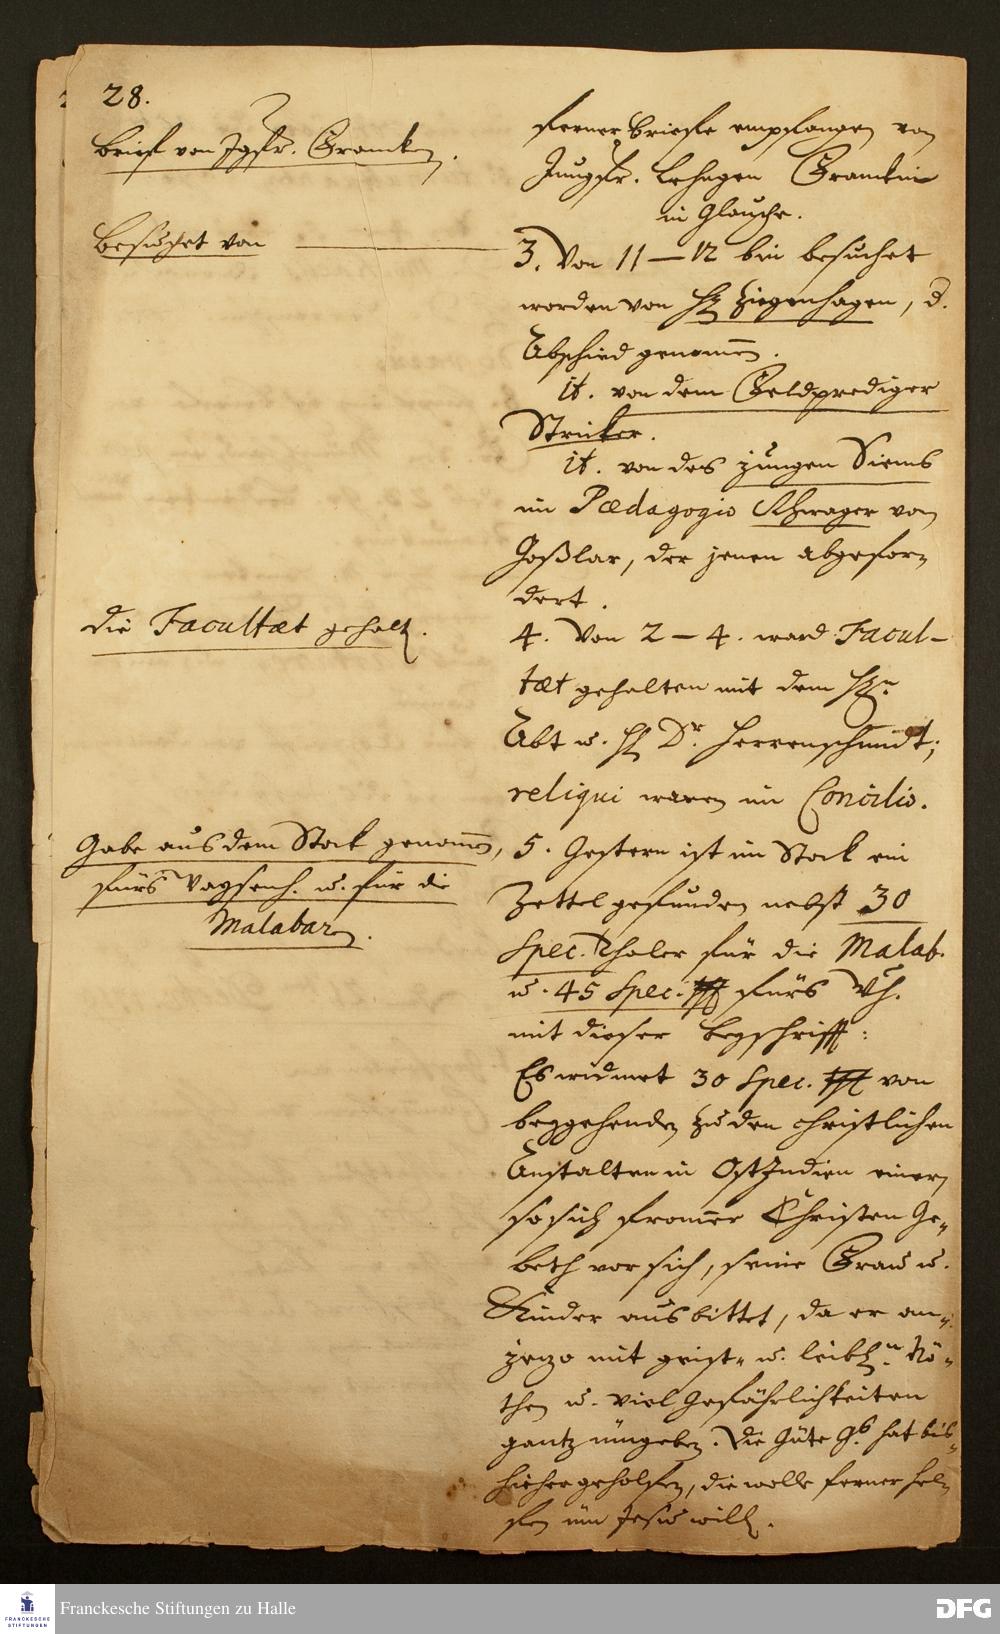 28.
Brief von Jgfr. Francken.
Besuchet von
die Facultæt gehalt.
Gabe aus dem Stock genomen,
fürs Waysenh. u. für die
Malabaren.
ferner Briefe empfangen von
Jungfr. Francken
in Glaucha.
3. Von 11 – 12 bin besuchet
worden von H. Ziegenhagen, d.
Abschied genomen.
it. von dem Feldprediger
Stricker.
it. von des jungen Siems
im Pædagogio Schwager von
Goßlar, der jenen abgefor-
dert.
4. Von 2 – 4. ward Facul-
tæt gehalten mit dem Hn.
Abt u. H. Dr. Herrenschmidt;
reliqui waren im Concilio.
5. Gestern ist im Stock ein
Zettel gefunden nebst 30
Spec. Thaler für die Malab.
u. 45 Spec. Thl fürs Wh.
mit dieser Beyschrifft:
Es widmet 30 Spec. Thl von
beygehenden zu den christlichen
Anstalten in OstIndien einer,
so sich fromer Christen Ge-
beth vor sich, seine Frau u.
Kinder ausbittet, da er an-
jezo mit geist- u. leibl.n Nö-
then u. viel Gefährlichkeiten
gantz umgeben. Die Güte Gs. hat bis-
hieher geholfen, die wolle ferner hel-
fen um Jesu will.
Franckesche Stiftungen zu Halle
FRANCKESCHE
STIFTUNGEN
DFG